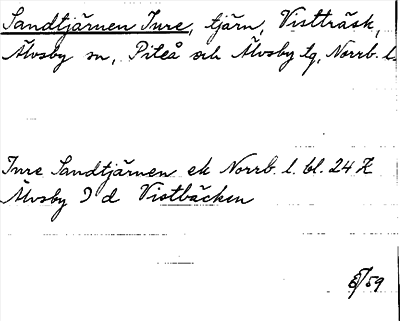 Sandtjärnen Inre, tjärn, Vistträsk,
Älvsby sn, Piteå och Älvsby tg, Norrb. l.
Inre Sandtjärnen ek Norrb. l. bl. 24 K
Älvsby 9 d Vistbäcken
6/59